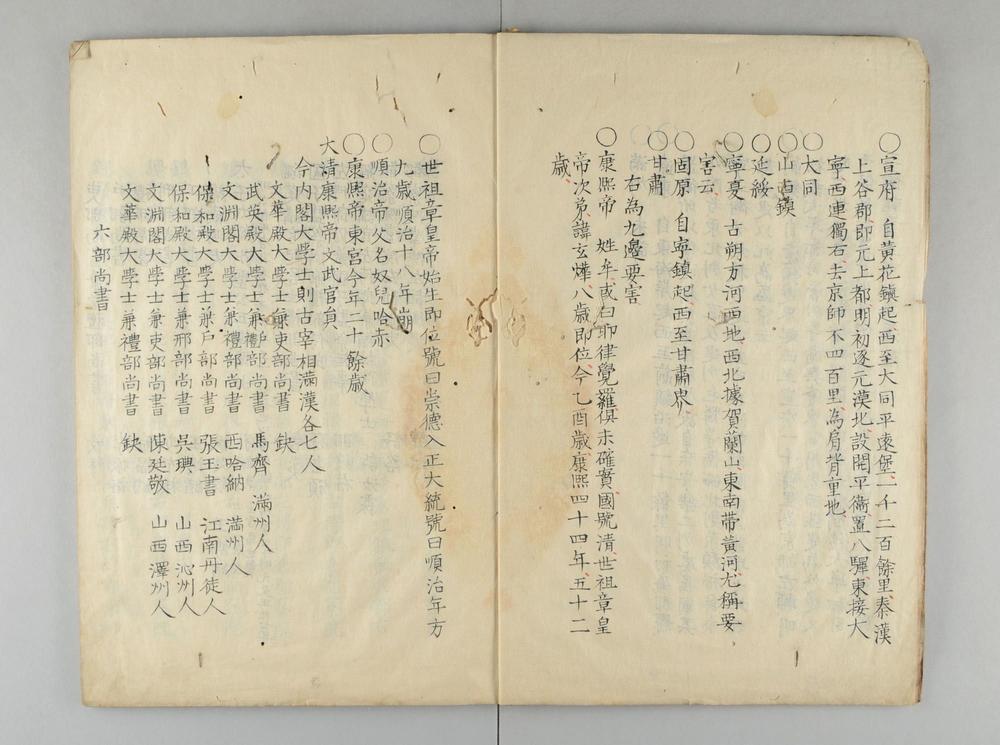 〇宣府 自黃花鎮起西至大同平遠堡一千二百餘里秦漢
上谷郡即元上都明初逐元漠北設開平衛置八驛東接大
寧西連獨石去京師不四百里為肩背重地
〇大同
〇山西鎮
〇延綏
〇寧夏 古朔方河西地西北據賀蘭山東南帶黃河尤稱要
害云
〇固原 自寧鎮起西至甘肅界
〇甘肅
右為九邊要害
〇康熙帝 姓牟或曰耶律覺羅俱未確實國號清世祖章皇
帝次弟諱玄燁八歲即位今乙酉歲康熙四十四年五十二
歲
〇世祖章皇帝始生即位號曰崇德入正大統號曰順治年方
九歲順治十八年崩
〇順治帝父名奴兒哈赤
〇康熙帝東宮今年二十餘歲
大清康熙帝文武官員
今内閣大學士則古宰相滿漢各七人
文華殿大學士兼吏部尚書 缺
武英殿大學士兼禮部尚書 馬齊 滿州人
文淵閣大學士兼禮部尚書 西哈納 満州人
保和殿大學士兼戶部尚書 張玉書 江南丹徒人
保和殿大學士兼刑部尚書 吳琠 山西沁州人
文淵閣大學士兼吏部尚書 陳廷敬 山西澤州人
文華殿大學士兼禮部尚書 缺
六部尚書